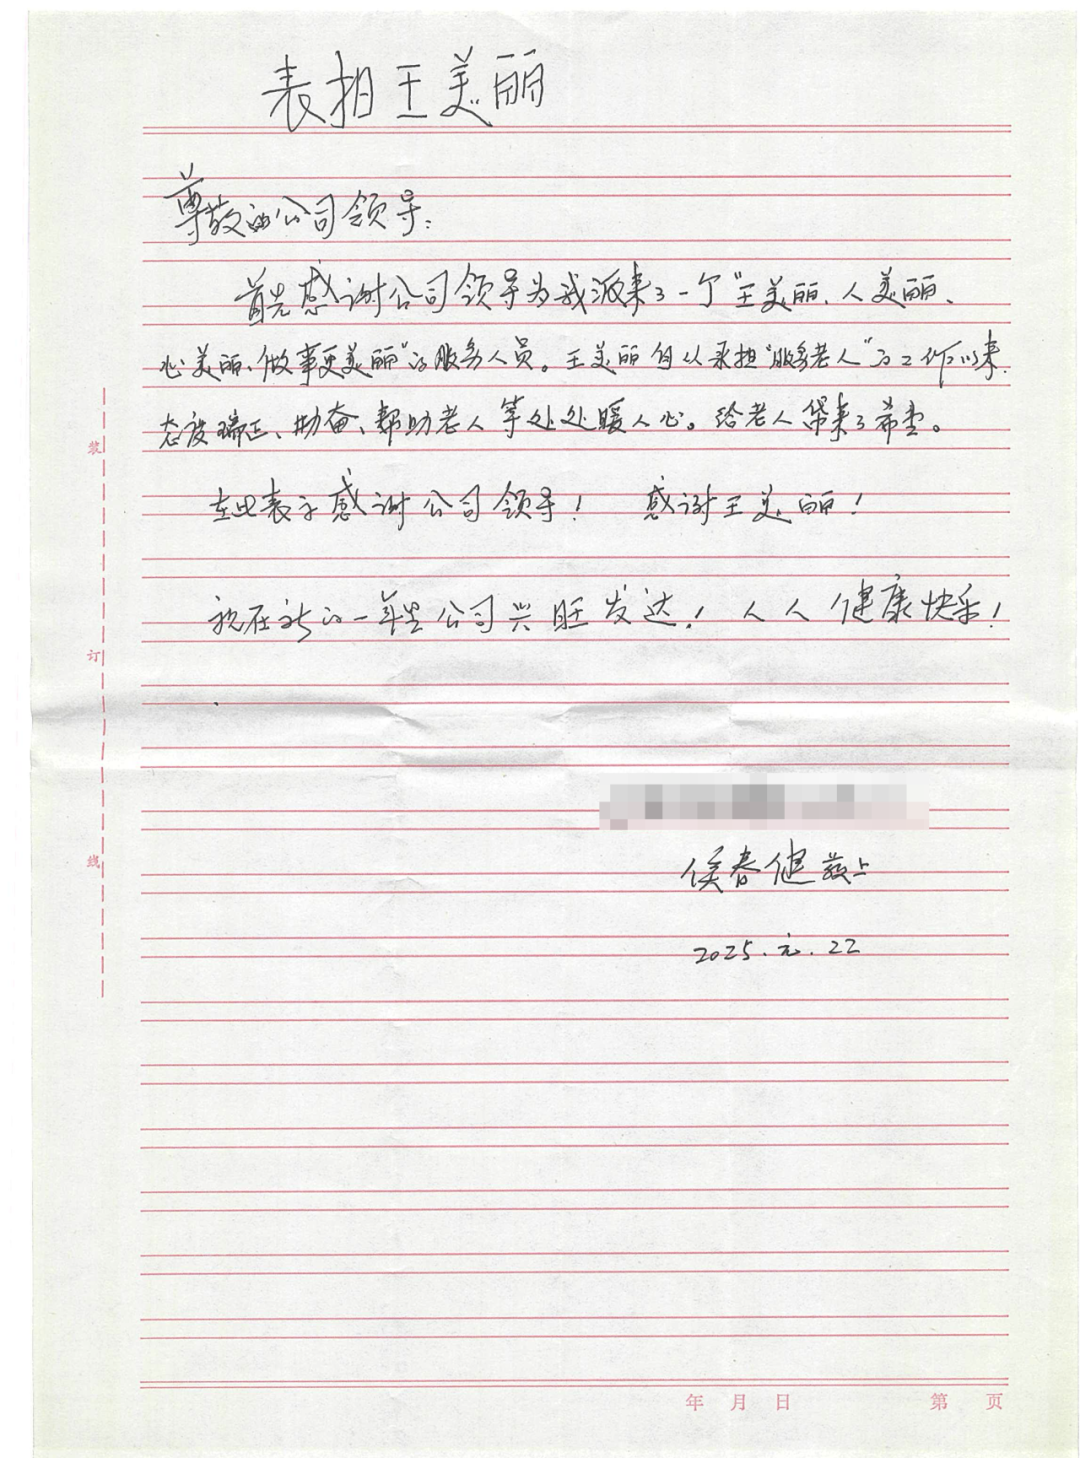 表扬王美丽
尊敬的公司领导：
首先感谢公司领导为我派来了一个“王美丽、人美丽、
心美丽、做事更美丽”的服务人员。王美丽自从承担“服务老人”的工作以来，
态度端正、勤奋、帮助老人等处处暖人心。给老人带来了希望。
在此表示感谢公司领导！ 感谢王美丽！
祝在新的一年里公司兴旺发达！人人健康快乐！
侯春健 敬上
2025.元.22
装
订
线
年 月 日 第 页